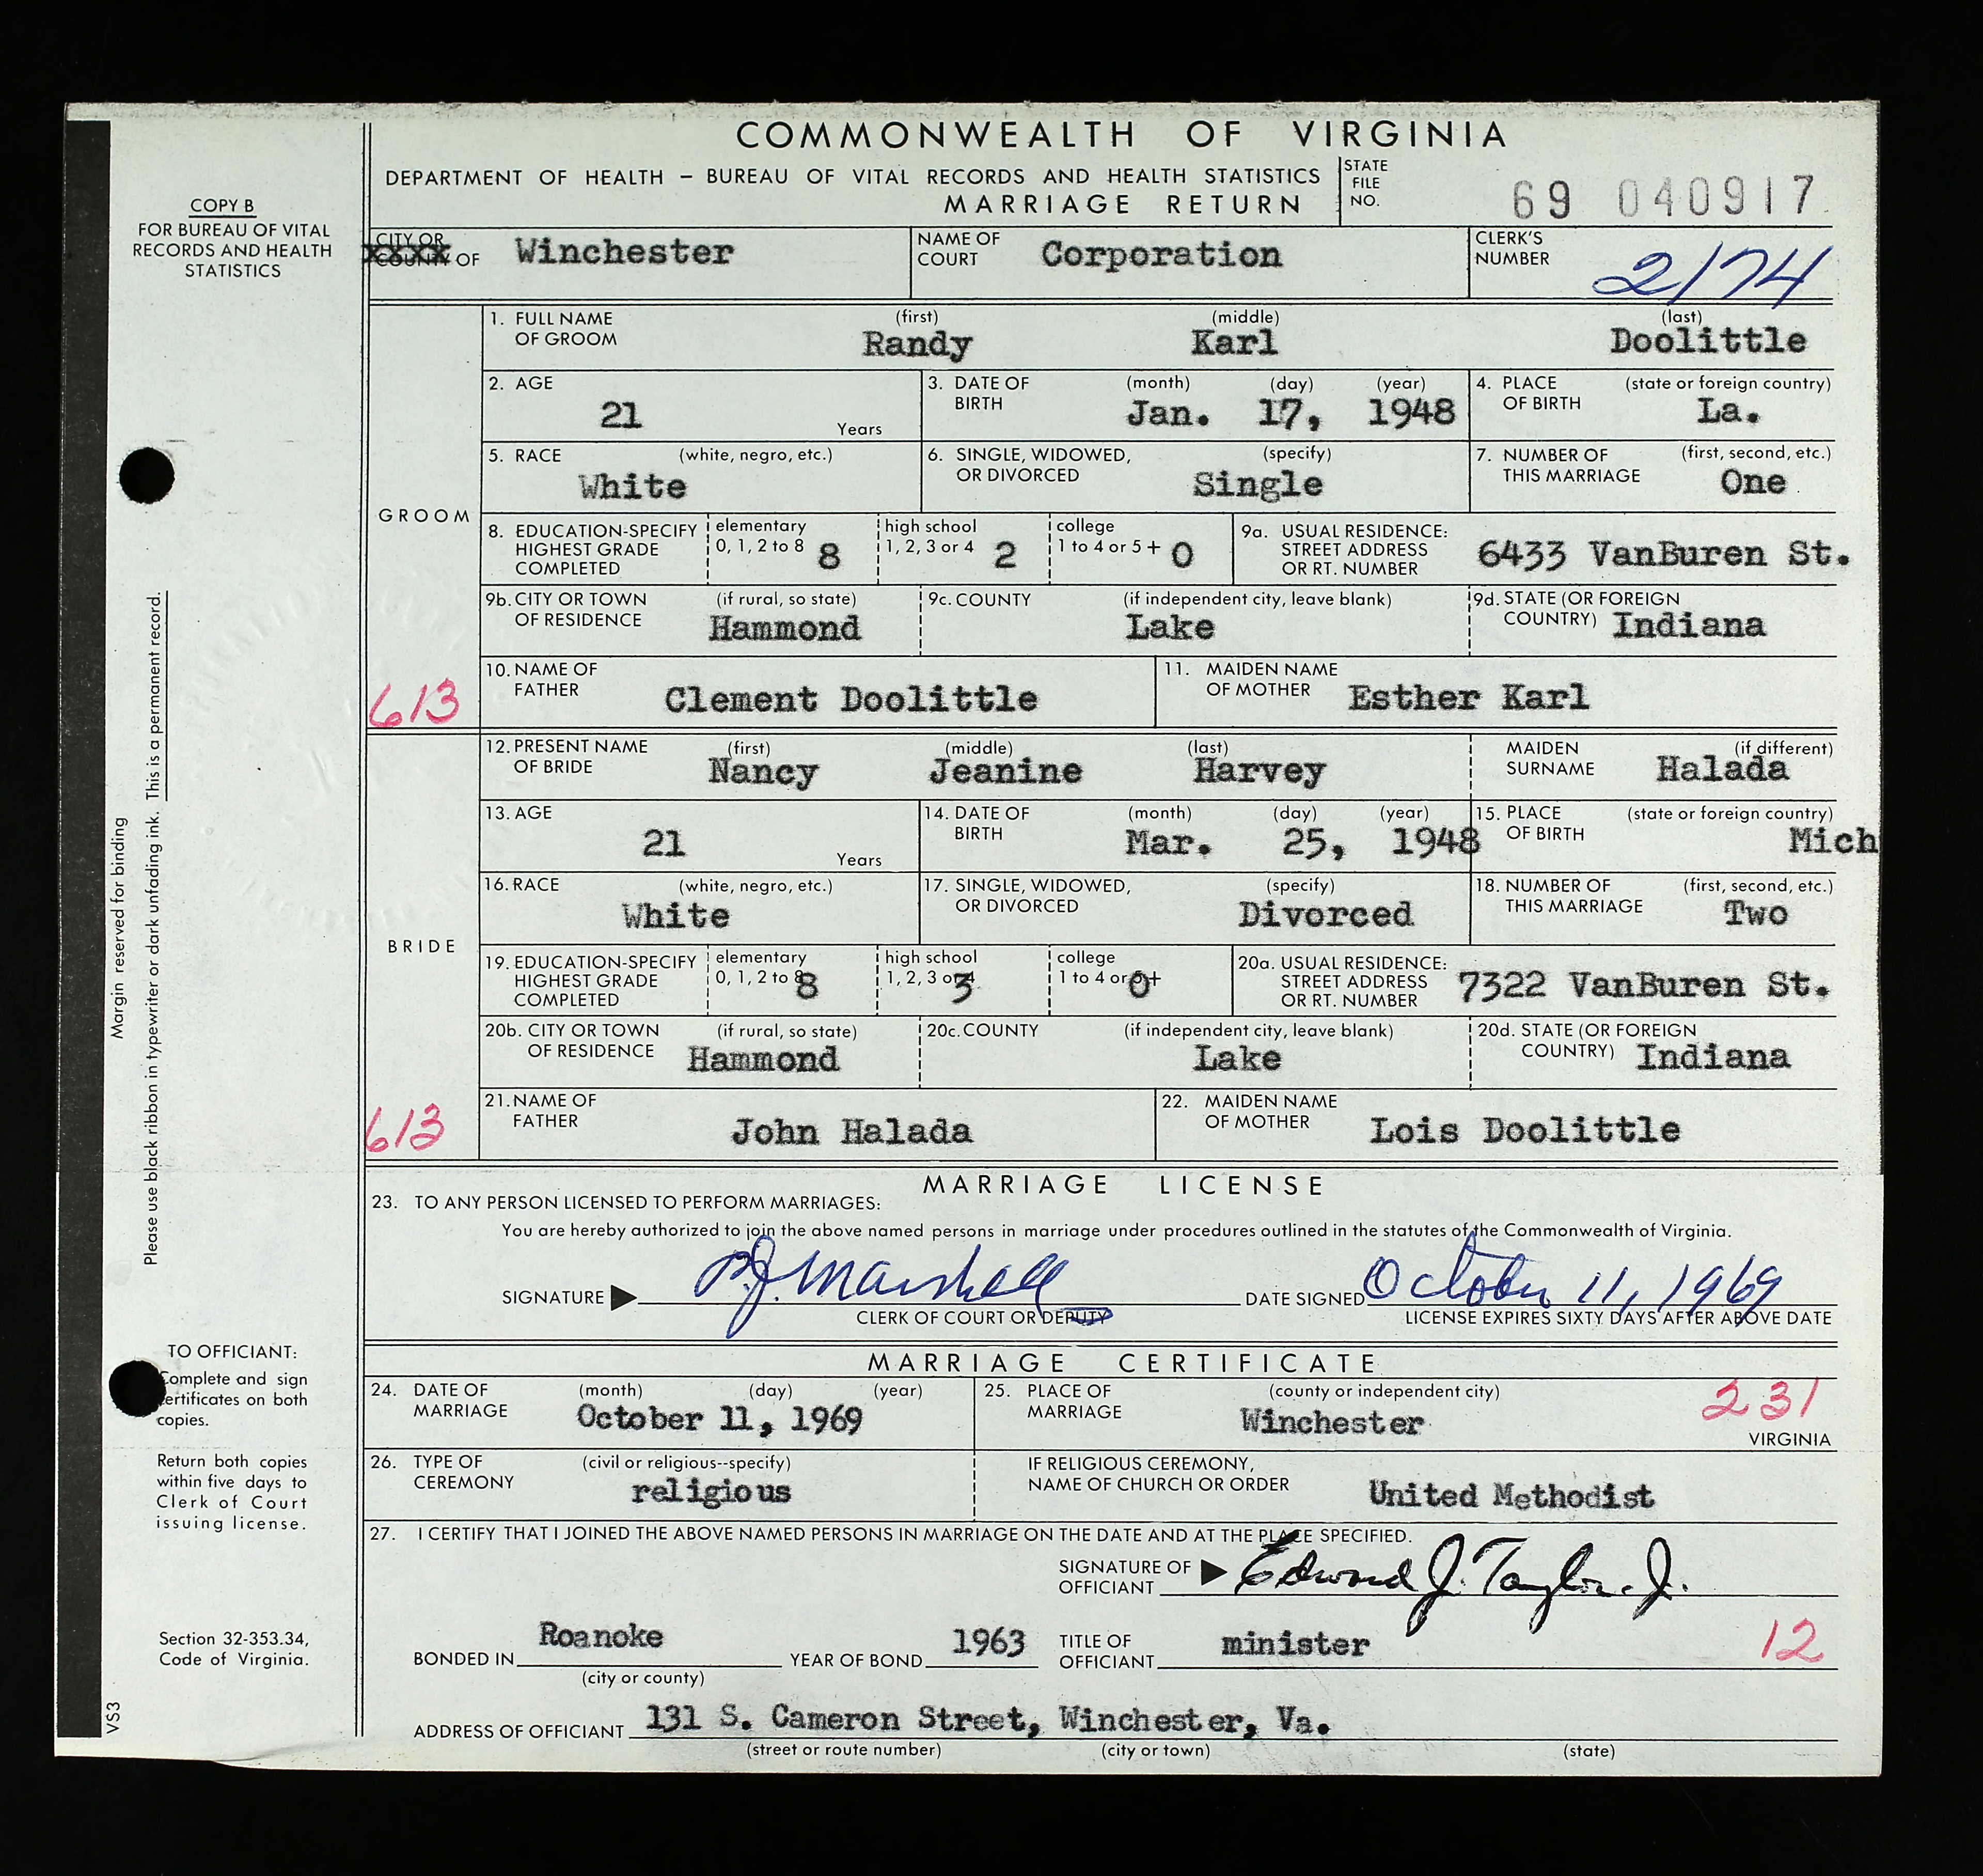 COMMONWEALTH OF VIRGINIA
DEPARTMENT OF HEALTH – BUREAU OF VITAL RECORDS AND HEALTH STATISTICS
MARRIAGE RETURN
STATE FILE NO. 69 040917
COPY B
FOR BUREAU OF VITAL
RECORDS AND HEALTH
STATISTICS
CITY OR
COUNTY OF Winchester
NAME OF COURT Corporation
CLERK'S NUMBER 2174
GROOM
1. FULL NAME OF GROOM (first) Randy (middle) Karl (last) Doolittle
2. AGE 21 Years
3. DATE OF BIRTH (month) (day) (year) Jan. 17, 1948
4. PLACE OF BIRTH (state or foreign country) La.
5. RACE (white, negro, etc.) White
6. SINGLE, WIDOWED, OR DIVORCED (specify) Single
7. NUMBER OF THIS MARRIAGE (first, second, etc.) One
8. EDUCATION-SPECIFY HIGHEST GRADE COMPLETED elementary 0, 1, 2 to 8 8 high school 1, 2, 3 or 4 2 college 1 to 4 or 5+ 0
9a. USUAL RESIDENCE: STREET ADDRESS OR RT. NUMBER 6433 VanBuren St.
9b. CITY OR TOWN OF RESIDENCE (if rural, so state) Hammond
9c. COUNTY (if independent city, leave blank) Lake
9d. STATE (OR FOREIGN COUNTRY) Indiana
613
10. NAME OF FATHER Clement Doolittle
11. MAIDEN NAME OF MOTHER Esther Karl
BRIDE
12. PRESENT NAME OF BRIDE (first) Nancy (middle) Jeanine (last) Harvey
MAIDEN SURNAME (if different) Halada
13. AGE 21 Years
14. DATE OF BIRTH (month) (day) (year) Mar. 25, 1948
15. PLACE OF BIRTH (state or foreign country) Mich
16. RACE (white, negro, etc.) White
17. SINGLE, WIDOWED, OR DIVORCED (specify) Divorced
18. NUMBER OF THIS MARRIAGE (first, second, etc.) Two
19. EDUCATION-SPECIFY HIGHEST GRADE COMPLETED elementary 0, 1, 2 to 8 8 high school 1, 2, 3 or 4 3 college 1 to 4 or 5+ 0
20a. USUAL RESIDENCE: STREET ADDRESS OR RT. NUMBER 7322 VanBuren St.
20b. CITY OR TOWN OF RESIDENCE (if rural, so state) Hammond
20c. COUNTY (if independent city, leave blank) Lake
20d. STATE (OR FOREIGN COUNTRY) Indiana
613
21. NAME OF FATHER John Halada
22. MAIDEN NAME OF MOTHER Lois Doolittle
MARRIAGE LICENSE
23. TO ANY PERSON LICENSED TO PERFORM MARRIAGES:
You are hereby authorized to join the above named persons in marriage under procedures outlined in the statutes of the Commonwealth of Virginia.
SIGNATURE Marshall DATE SIGNED October 11, 1969
CLERK OF COURT OR DEPUTY
LICENSE EXPIRES SIXTY DAYS AFTER ABOVE DATE
MARRIAGE CERTIFICATE
24. DATE OF MARRIAGE (month) (day) (year) October 11, 1969
25. PLACE OF MARRIAGE (county or independent city) Winchester 231 VIRGINIA
26. TYPE OF CEREMONY (civil or religious--specify) religious
IF RELIGIOUS CEREMONY, NAME OF CHURCH OR ORDER United Methodist
27. I CERTIFY THAT I JOINED THE ABOVE NAMED PERSONS IN MARRIAGE ON THE DATE AND AT THE PLACE SPECIFIED.
SIGNATURE OF OFFICIANT Edward J. Taylor. Jr.
BONDED IN Roanoke (city or county) YEAR OF BOND 1963
TITLE OF OFFICIANT minister 12
ADDRESS OF OFFICIANT 131 S. Cameron Street, Winchester, Va.
(street or route number) (city or town) (state)
Margin reserved for binding
Please use black ribbon in typewriter or dark unfading ink. This is a permanent record.
TO OFFICIANT:
Complete and sign
certificates on both
copies.
Return both copies
within five days to
Clerk of Court
issuing license.
Section 32-353.34,
Code of Virginia.
VS3